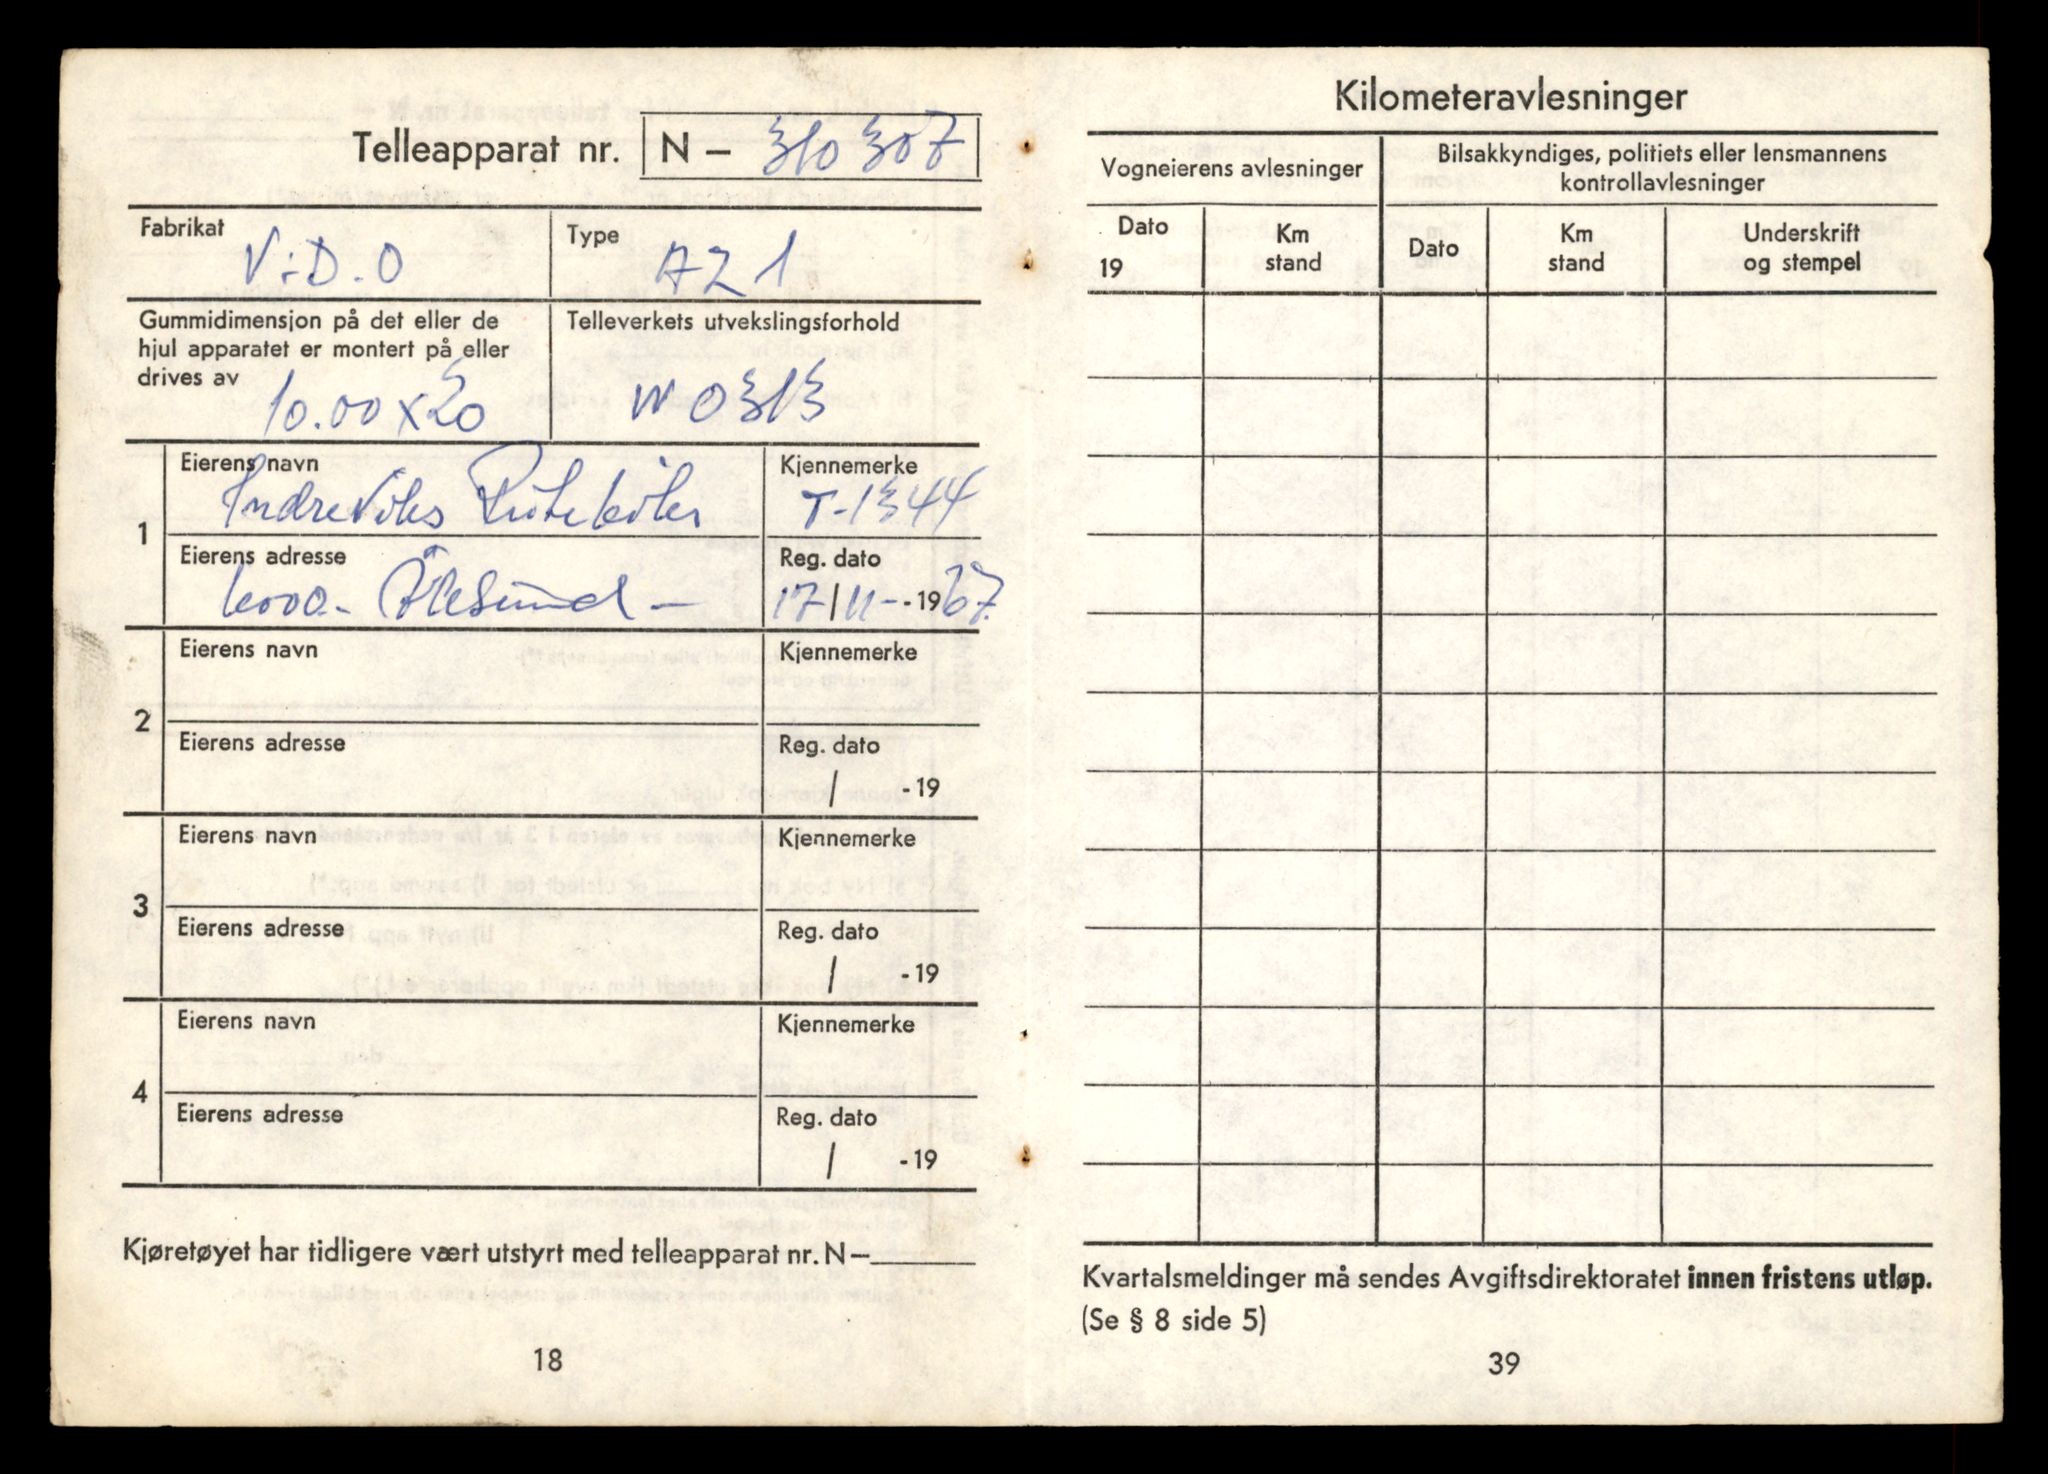 Telleapparat nr. N – 310307
Fabrikat
V.D.O
Type
AZ1
Gummidimensjon på det eller de
hjul apparatet er montert på eller
drives av
10.00x20
Telleverkets utvekslingsforhold
W 0313
1
Eierens navn
Indre Viks Rutebiler
Kjennemerke
T-1344
Eierens adresse
6000- Ålesund -
Reg. dato
17/11- -1967.
2
Eierens navn
Kjennemerke
Eierens adresse
Reg. dato
/ -19
3
Eierens navn
Kjennemerke
Eierens adresse
Reg. dato
/ -19
4
Eierens navn
Kjennemerke
Eierens adresse
Reg. dato
/ -19
Kjøretøyet har tidligere vært utstyrt med telleapparat nr. N –
18
Kilometeravlesninger
Vogneierens avlesninger
Bilsakkyndiges, politiets eller lensmannens
kontrollavlesninger
Dato
19
Km
stand
Dato
Km
stand
Underskrift
og stempel
Kvartalsmeldinger må sendes Avgiftsdirektoratet innen fristens utløp.
(Se § 8 side 5)
39